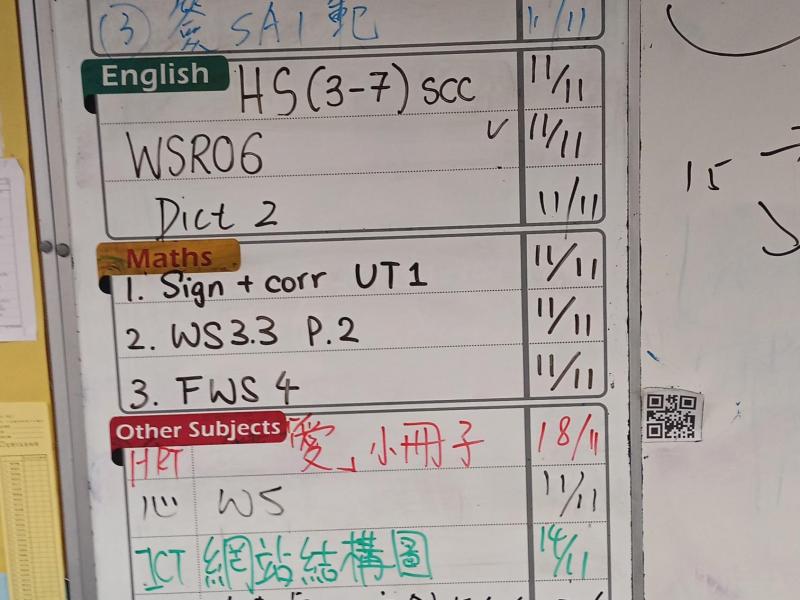 (3) SA1 範 11/11
English
HS (3-7) SCC 11/11
WSR06 ✓ 11/11
Dict 2 11/11
Maths
1. Sign + corr UT1 11/11
2. WS3.3 P.2 11/11
3. FWS 4 11/11
Other Subjects
HRT 「愛」小冊子 18/11
心 WS 11/11
ICT 網站結構圖 14/11
15